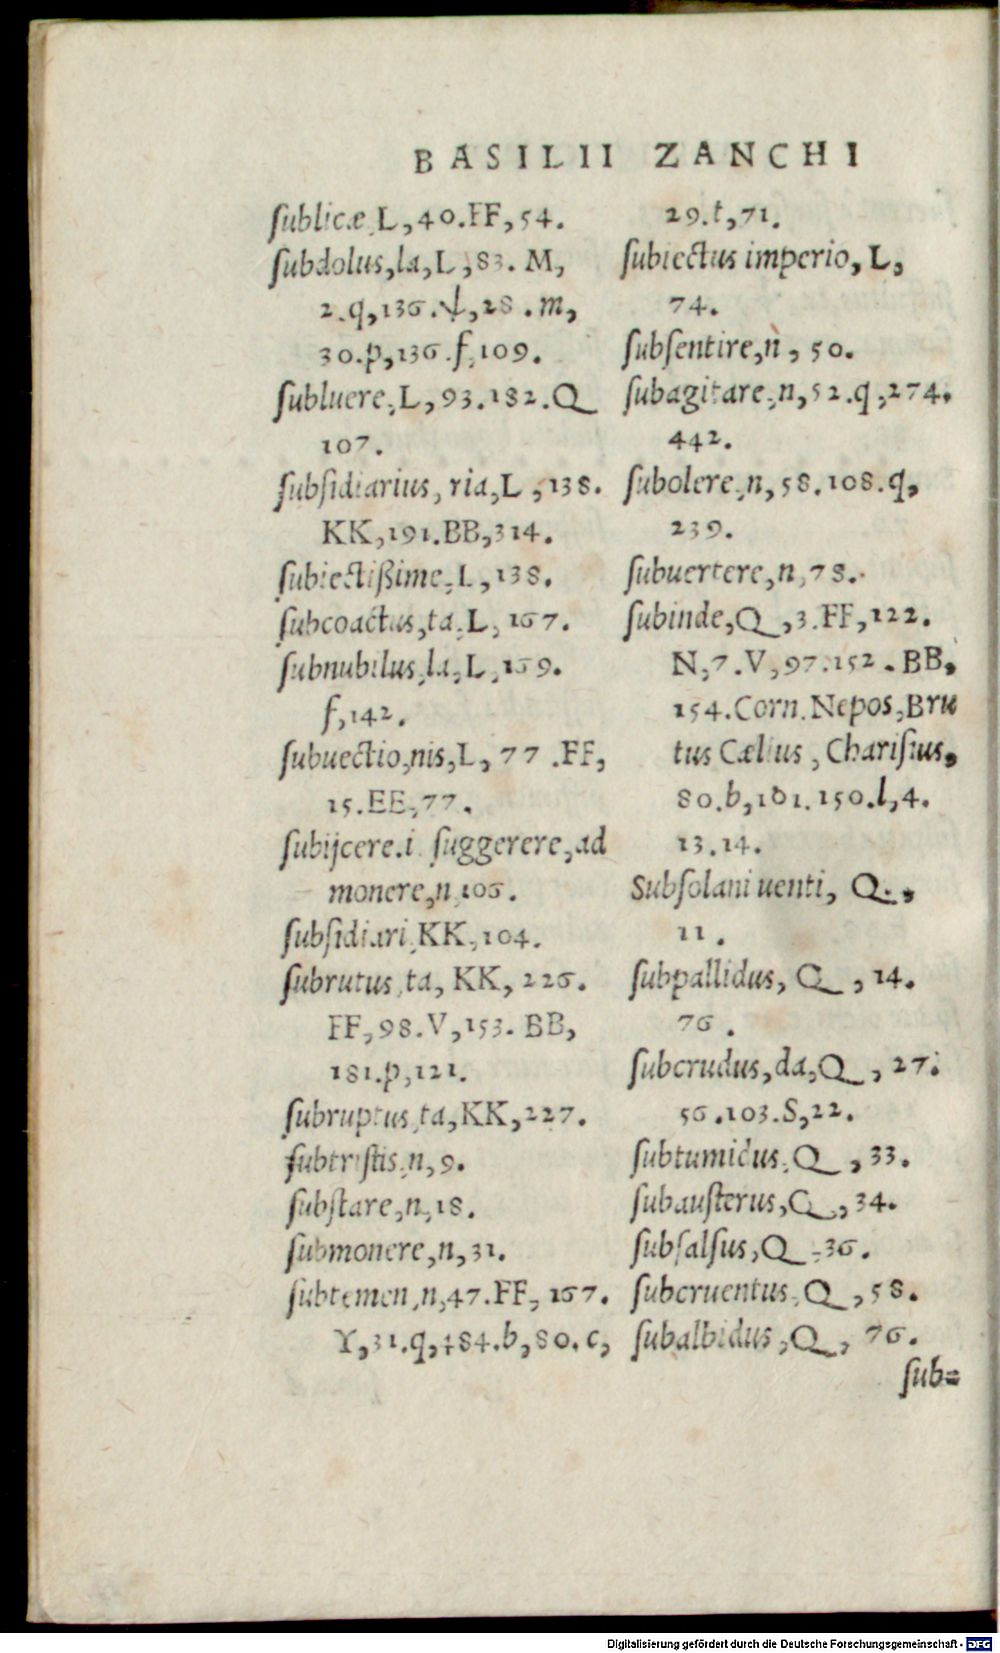 BASILII ZANCHI
ſublicæ, L, 40. FF, 54.
ſubdolus, la, L, 83. M,
2. q, 136. ψ, 28. m,
30. p, 136. f, 109.
ſubluere, L, 93. 182. Q
107.
ſubſidiarius, ria, L, 138.
KK, 191. BB, 314.
ſubiectißime, L, 138.
ſubcoactus, ta, L, 167.
ſubnubilus, la, L, 159.
f, 142.
ſubuectio, nis, L, 77. FF,
15. EE, 77.
ſubijcere. i. ſuggerere, ad
monere, n, 106.
ſubſidiari, KK, 104.
ſubrutus, ta, KK, 226.
FF, 98. V, 153. BB,
181. p, 121.
ſubruptus, ta, KK, 227.
ſubtriſtis, n, 9.
ſubſtare, n, 18.
ſubmonere, n, 31.
ſubtemen, n, 47. FF, 167.
Y, 31. q, 484. b, 80. c,
29. t, 71.
ſubiectus imperio, L,
74.
ſubſentire, n, 50.
ſubagitare, n, 52. q, 274.
442.
ſubolere, n, 58. 108. q,
239.
ſubuertere, n, 78.
ſubinde, Q, 3. FF, 122.
N, 7. V, 97. 152. BB,
154. Corn. Nepos, Bru
tus Cælius, Chariſius,
80. b, 101. 150. l, 4.
13. 14.
Subſolani uenti, Q.,
11.
ſubpallidus, Q, 14.
76.
ſubcrudus, da, Q, 27.
56. 103. S, 22.
ſubtumidus, Q, 33.
ſubauſterus, Q, 34.
ſubſalſus, Q, 36.
ſubcruentus, Q, 58.
ſubalbidus, Q, 76.
ſub=
Digitalisierung gefördert durch die Deutsche Forschungsgemeinschaft - DFG